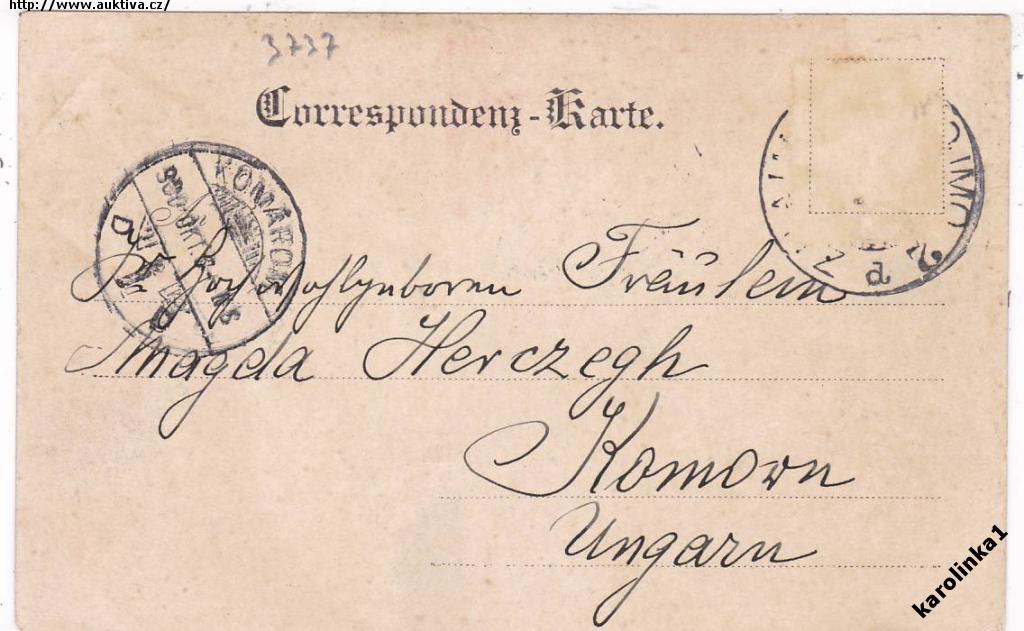 http://www.auktiva.cz/
3737
Correspondenz-Karte.
KOMÁROM
d
Hochwohlgeboren Fräulein
Magda Herczegh
Komorn
Ungarn
karolinka1